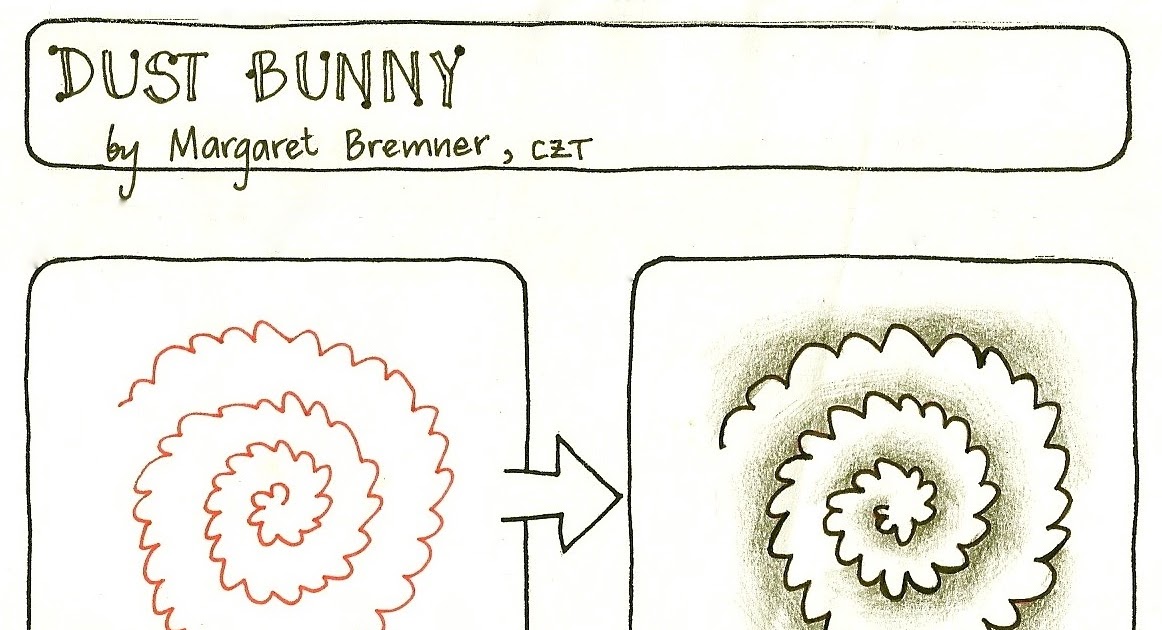 DUST BUNNY
by Margaret Bremner, CZT